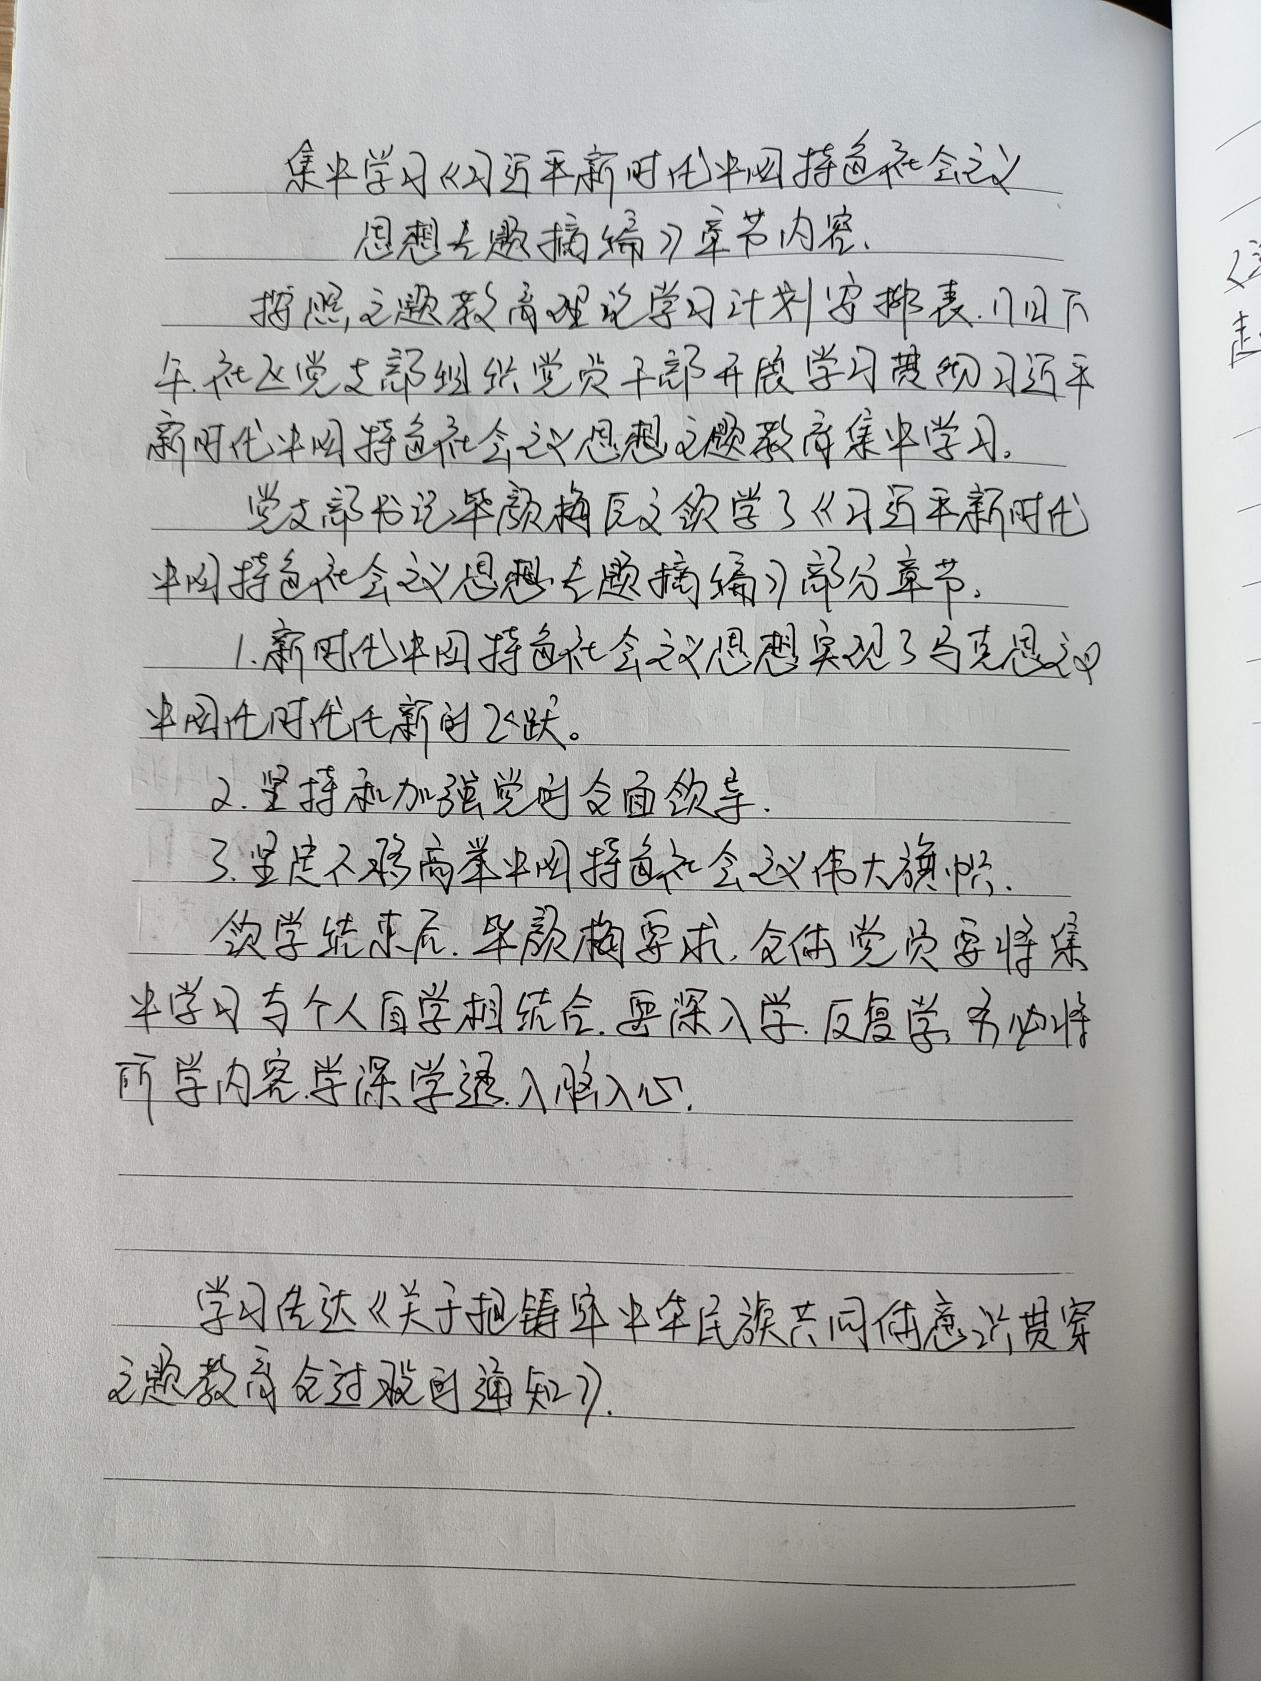 集中学习《习近平新时代中国特色社会主义
思想专题摘编》章节内容.
按照主题教育理论学习计划安排表.17日下
午.社区党支部组织党员干部开展学习贯彻习近平
新时代中国特色社会主义思想主题教育集中学习.
党支部书记毕颜梅同志领学了《习近平新时代
中国特色社会主义思想专题摘编》部分章节.
1.新时代中国特色社会主义思想实现了马克思主义
中国化时代化新的飞跃。
2.坚持和加强党的全面领导.
3.坚定不移高举中国特色社会主义伟大旗帜.
领学结束后.毕颜梅要求.全体党员要将集
中学习与个人自学相结合.要深入学.反复学,务必将
所学内容.学深学透.入脑入心.
学习传达《关于把铸牢中华民族共同体意识贯穿
主题教育全过程的通知》.